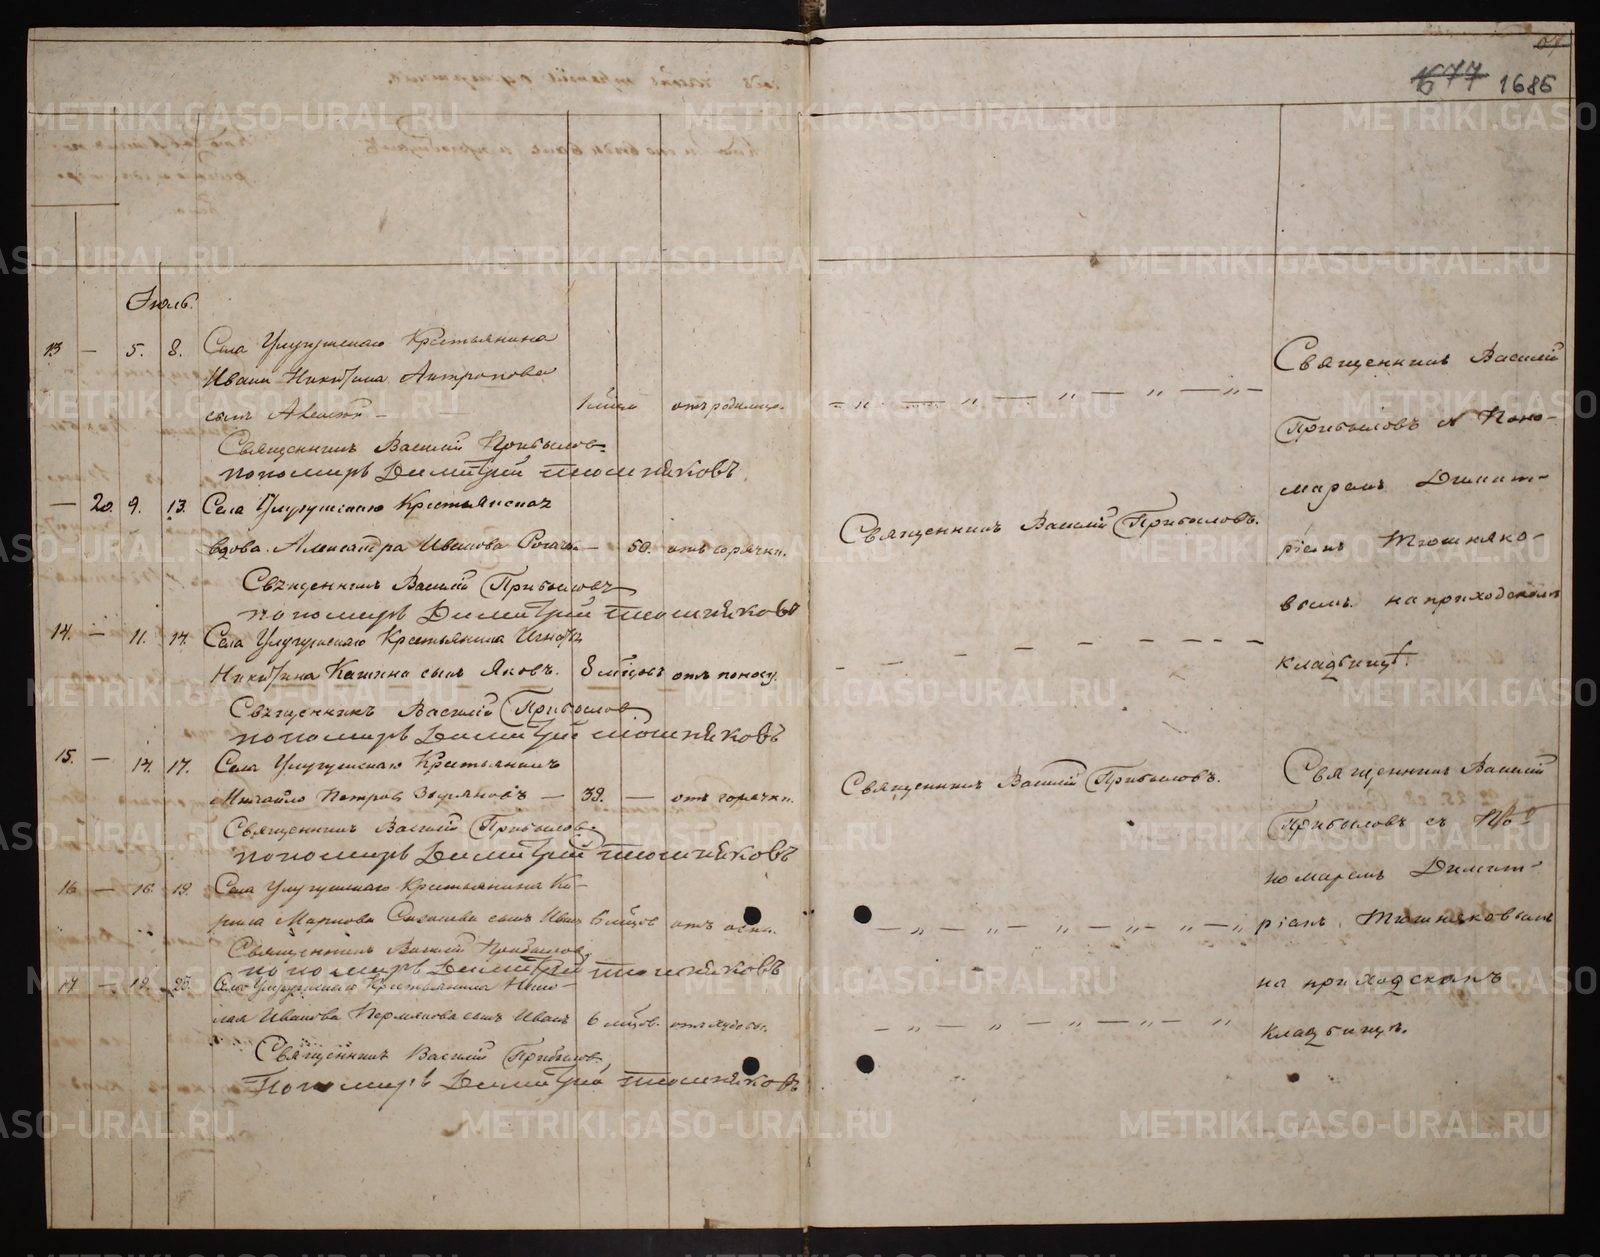 677 1686
Іюль.
13 — 5. 8. Села Крестьянина
Ивана Никитина Антропова
сынъ Алексѣй — 1 мѣся отъ родимца.
Священникъ Василій Прибыловъ
пономарь Димитрій Тюшняковъ
— 20. 9. 13. Села Крестьянская
вдова Александра Иванова — 50. отъ горячки.
Священникъ Василій Прибыловъ
пономарь Димитрій Тюшняковъ
14. — 11. 14. Села Крестьянина
Никитина Кашина сынъ Яковъ. 8 мѣсцовъ отъ поносу.
Священникъ Василій Прибылов
пономарь Димитрій Тюшняковъ
15. — 14. 17. Села Крестьянинъ
Михайло Петровъ — 39. — отъ горячки.
Священникъ Василій Прибылов
пономарь Димитрій Тюшняковъ
16 — 16 19. Села Крестьянина Ки-
рила Маркова сынъ Иванъ 6 мѣсцов отъ оспы.
Священникъ Василій Прибыловъ
пономарь Димитрій Тюшняковъ
17 — 19. 20. Села Крестьянина Нико-
лая Иванова Пермякова сынъ Иванъ 6 мѣсцов.
Священникъ Василій Прибылов
Пономарь Димитрій Тюшняковъ
— „ — „ — „ — „ —
Священникъ Василій Прибыловъ.
— — — — — — —
Священникъ Василій Прибыловъ.
— „ — „ — „ — „ — „
— „ — „ — „ — „ — „
Священникъ Василій
Прибыловъ и Поно-
маремъ Димит-
ріемъ Тюшняко-
вымъ на приходскомъ
кладбищѣ.
Священникъ Василій
Прибыловъ съ По-
номаремъ Димит-
ріемъ Тюшняковымъ
на приходскомъ
кладбищѣ.
METRIKI.GASO-URAL.RU